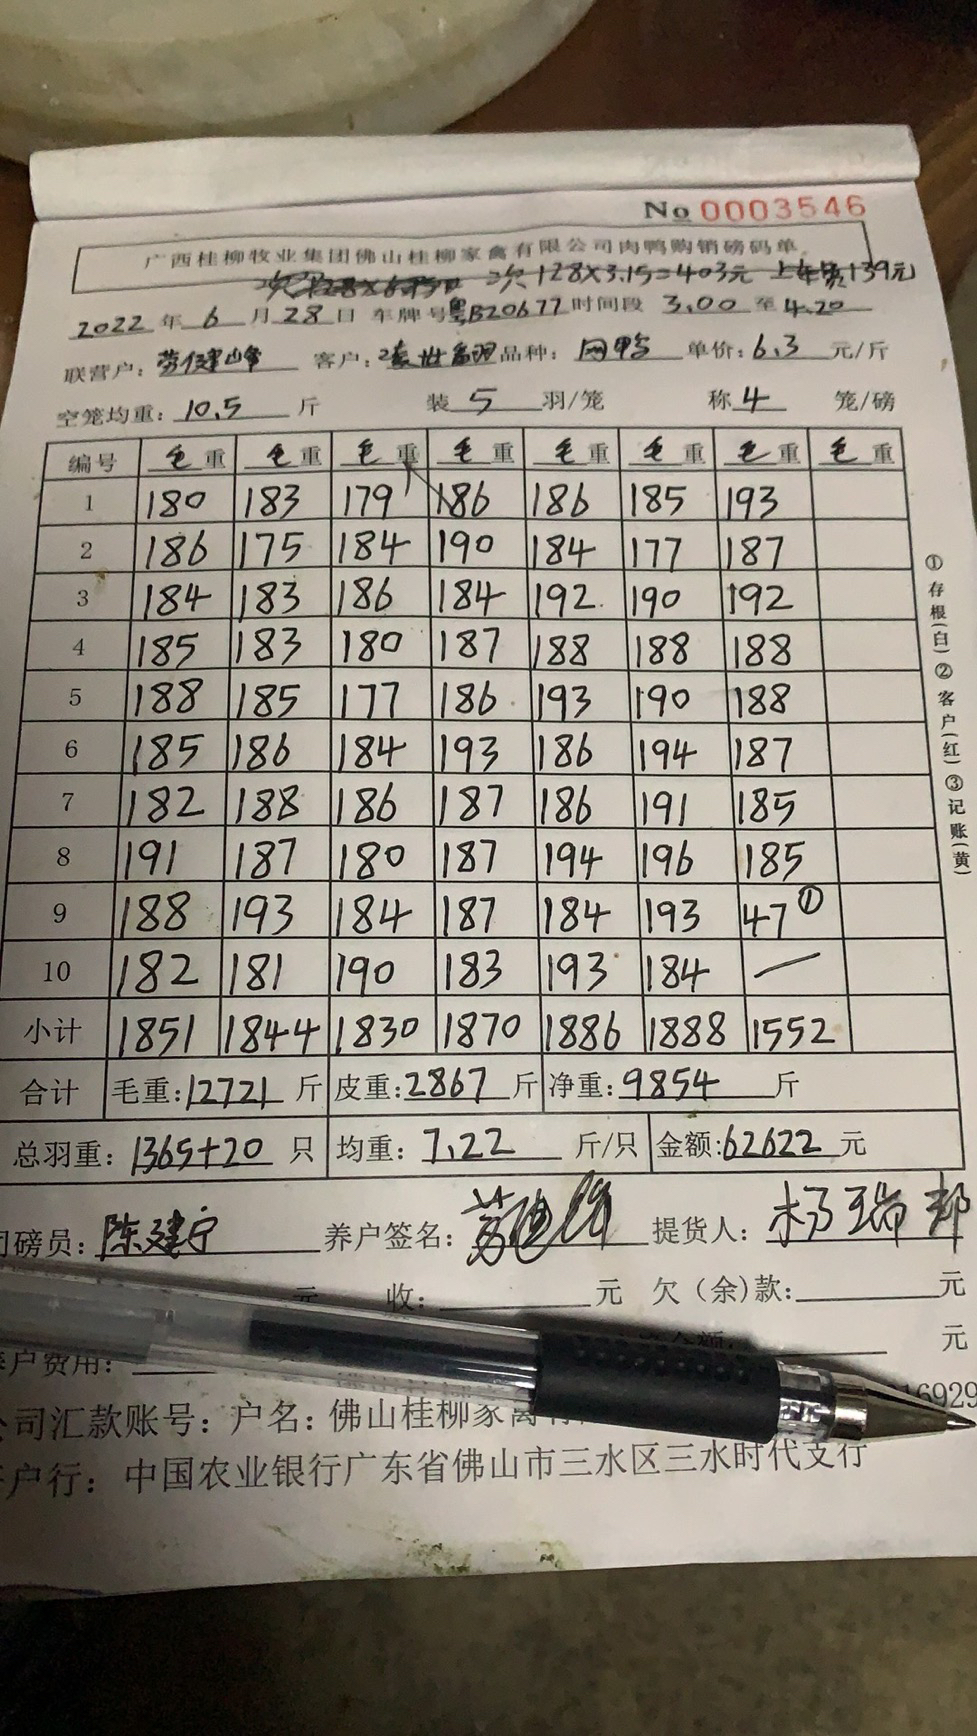 No 0003546
广西桂柳牧业集团佛山桂柳家禽有限公司肉鸭购销磅码单
次128×3.15=403元 139元
2022年6月28日 车牌号粤B20677 时间段 3.00至4.20
联营户:劳健峰 客户: 品种: 单价:6.3 元/斤
空笼均重:10.5 斤 装5羽/笼 称4笼/磅
编号 毛重 毛重 毛重 毛重 毛重 毛重 毛重 毛重
1 180 183 179 186 186 185 193
2 186 175 184 190 184 177 187
3 184 183 186 184 192 190 192
4 185 183 180 187 188 188 188
5 188 185 177 186 193 190 188
6 185 186 184 193 186 194 187
7 182 188 186 187 186 191 185
8 191 187 180 187 194 196 185
9 188 193 184 187 184 193 47①
10 182 181 190 183 193 184 —
小计 1851 1844 1830 1870 1886 1888 1552
合计 毛重:12721斤 皮重:2867斤 净重:9854斤
总羽重:1365+20只 均重:7.22斤/只 金额:62622元
司磅员:陈建宁 养户签名: 提货人:杨瑞邦
元 收: 元 欠(余)款: 元
元
户费用:
司汇款账号:户名:佛山桂柳家禽 16929
户行:中国农业银行广东省佛山市三水区三水时代支行
①存根(白)②客户(红)③记账(黄)